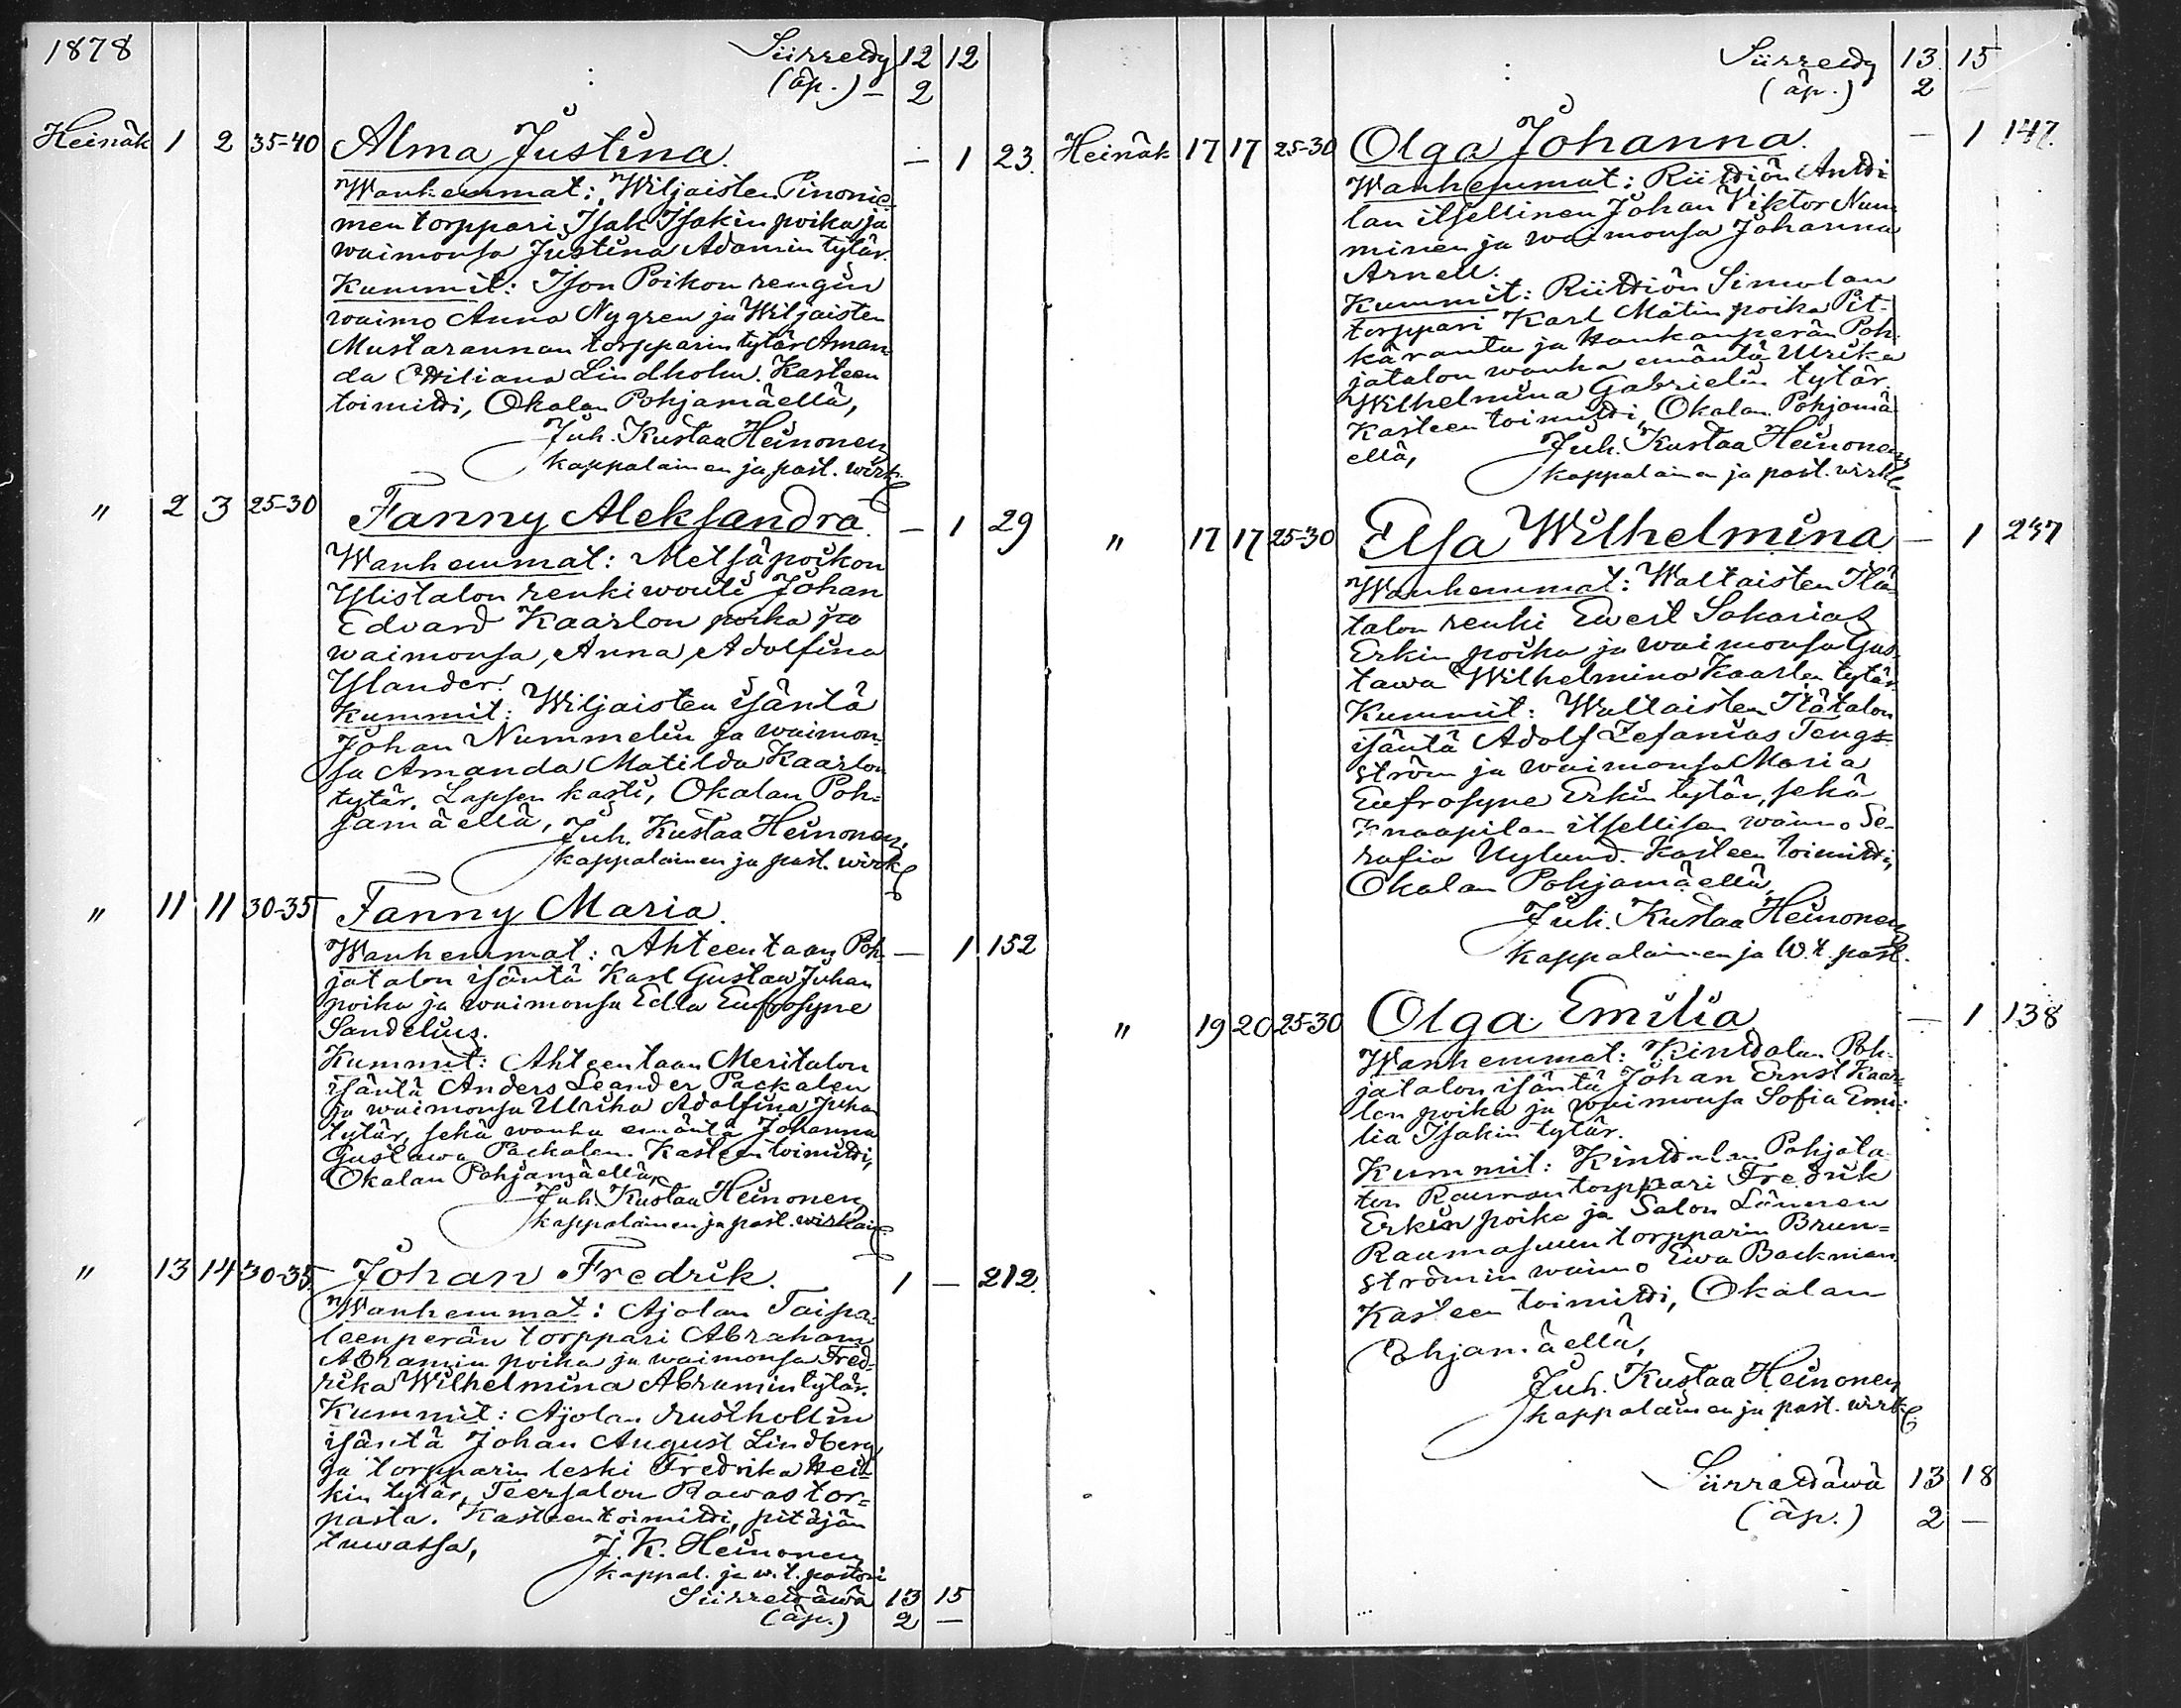 1878 Siirretty 12 12
(äp.) — 2
Heinäk 1 2 35-40 Alma Justina. — 1 23.
Wanhemmat: Wiljaisten Pinonie-
men torppari Isak Isakin poika ja
waimonsa Justina Adamin tytär.
Kummit: Ison Poikon rengin
waimo Anna Nygren ja Wiljaisten
Mustarannan torpparin tytär Aman-
da Lindholm. Kasteen
toimitti, Okalan Pohjamäellä,
Juh. Kustaa Heinonen,
kappalainen ja past. wirk.
" 2 3 25-30 Fanny Aleksandra. — 1 29
Wanhemmat: Metsäpoikon
Ylistalon renkiwouti Johan
Edvard Kaarlon poika ja
waimonsa, Anna Adolfina
Ylander.
Kummit: Wiljaisten isäntä
Johan Nummelin ja waimon-
sa Amanda Matilda Kaarlon
tytär. Lapsen kasti, Okalan Poh-
jamäellä,
Juh. Kustaa Heinonen,
kappalainen ja past. wirk
" 11 11 30-35 Fanny Maria.
Wanhemmat: Ahteentaan Poh- — 1 152
jatalon isäntä Karl Gustaa Juhan
poika ja waimonsa Edla Eufrosyne
Sandelius.
Kummit: Ahteentaan Meritalon
isäntä Anders Leander Packalen
ja waimonsa Ulrika Adolfina Juha
tytär, sekä wanha emäntä Johanna
Gustawa Packalen. Kasteen toimitti,
Okalan Pohjamäellä,
Juh. Kustaa Heinonen,
kappalainen ja past. wirkain
" 13 14 30-35 Johan Fredrik. 1 — 212.
Wanhemmat: Ajolan Taipa-
leenperän torppari Abraham
Abramin poika ja waimonsa Fred-
rika Wilhelmina Abramin tytär.
Kummit: Ajolan rusthollin
isäntä Johan August Lindberg
ja torpparin leski Fredrika Hei-
kin tytär, Teersalon Rawas tor-
pasta. Kasteen toimitti, pitäjän
tuwassa,
J. K. Heinonen,
kappal. ja w. t. pastori
Siirrettäwä 13 15
(äp.) 2 —
Siirretty 13 15
(äp.) 2 —
Heinäk 17 17 25-30 Olga Johanna. — 1 147.
Wanhemmat: Riittiön Antti-
lan itsellinen Johan Viktor Num-
minen ja waimonsa Johanna
Arnell.
Kummit: Riittiön Simolan
torppari Karl Matin poika Pit-
käranta ja Haukanperän Poh-
jatalon wanha emäntä Ulrika
Wilhelmina Gabrielin tytär.
Kasteen toimitti, Okalan Pohjamä-
ellä,
Juh. Kustaa Heinonen,
kappalainen ja past. wirk
" 17 17 25-30 Elsa Wilhelmina — 1 237
Wanhemmat: Waltaisten Itä-
talon renki Ewert Sakarias
Erkin poika ja waimonsa Gus-
tawa Wilhelmina Kaarlen tytär.
Kummit: Waltaisten Itätalon
isäntä Adolf Zefanias Teng-
ström ja waimonsa Maria
Eufrosyne Erkin tytär, sekä
Knaapilan itsellisen waimo Se-
rafia Nylund. Kasteen toimitti,
Okalan Pohjamäellä,
Juh. Kustaa Heinonen,
kappalainen ja w. t. past.
" 19 20 25-30 Olga Emilia — 1 138
Wanhemmat: Kinttalan Poh-
jatalon isäntä Johan Ernst Kaar-
lon poika ja waimonsa Sofia Emi-
lia Isakin tytär.
Kummit: Kinttalan Pohjata-
lon Rauman torppari Fredrik
Erkin poika ja Salon Lännen
Raumasuun torpparin Brun-
strömin waimo Ewa Backman.
Kasteen toimitti, Okalan
Pohjamäellä,
Juh. Kustaa Heinonen
kappalainen ja past. wirk
Siirrettäwä 13 18
(äp.) 2 —